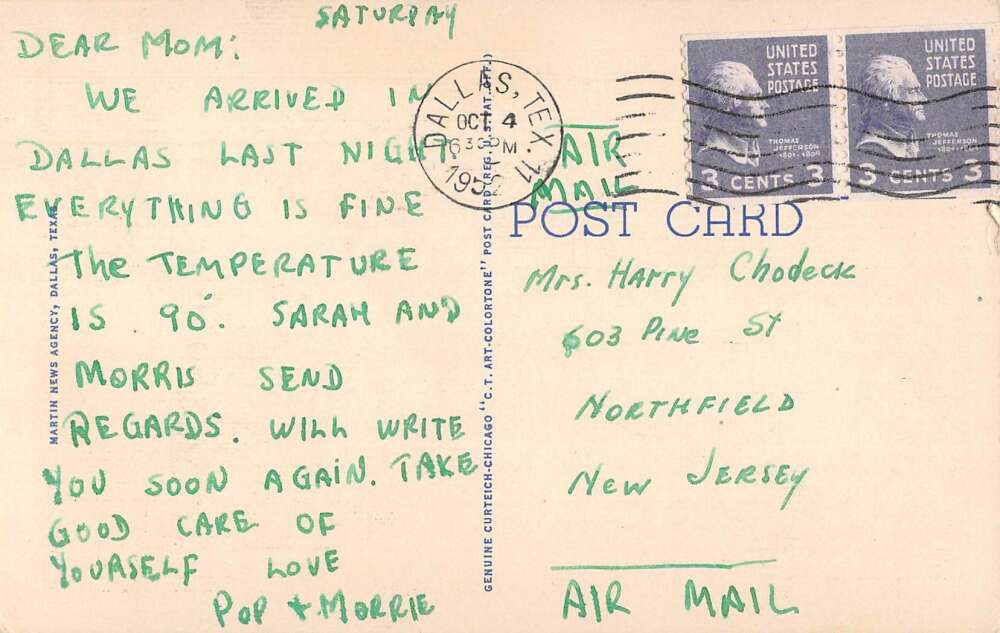 SATURDAY
DEAR MOM:
WE ARRIVED IN
DALLAS LAST NIGHT.
EVERYTHING IS FINE
The TEMPERATURE
IS 90°. SARAH AND
MORRIS SEND
REGARDS. WILL WRITE
YOU SOON AGAIN. TAKE
GOOD CARE OF
YOURSELF LOVE
POP + MORRIE
MARTIN NEWS AGENCY, DALLAS, TEXAS
GENUINE CURTEICH-CHICAGO "C.T. ART-COLORTONE" POST CARD (REG. U.S. PAT. OFF.)
DALLAS, TEX. 11
OCT 4
630 PM
1952
UNITED
STATES
POSTAGE
THOMAS
JEFFERSON
1801-1809
3 CENTS 3
UNITED
STATES
POSTAGE
THOMAS
JEFFERSON
1801-1809
3 CENTS 3
AIR
MAIL
POST CARD
Mrs. HARRY Chodeck
603 PINE ST
NORTHFIELD
NEW JERSEY
AIR MAIL